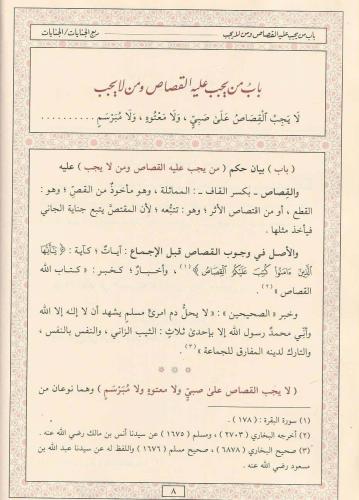 باب من يجب عليه القصاص ومن لا يجب
ربع الجنايات / الجنايات
بابُ من يجب عليه القصاص ومن لا يجب
لَا يَجِبُ الْقِصَاصُ عَلَىٰ صَبِيٍّ ، وَلَا مَعْتُوهٍ ، وَلَا مُبَرْسَمٍ ..........
( باب ) بيان حكم ( من يجب عليه القصاص ومن لا يجب ) عليه
والقِصاص ـ بكسر القاف ـ : المماثلة ، وهو مأخوذٌ من القصّ ؛ وهو :
القطع ، أو من اقتصاص الأثر ؛ وهو : تتبُّعه ؛ لأن المقتصَّ يتبع جناية الجاني
فيأخذ مثلها .
والأصل في وجوب القصاص قبل الإجماع : آياتٌ ؛ كآية : ﴿ يَٰٓأَيُّهَا
الَّذِينَ ءَامَنُواْ كُتِبَ عَلَيْكُمُ الْقِصَاصُ ﴾ (١) ، وأخبارٌ ؛ كخبر : « كتاب الله
القصاص » (٢) .
وخبر « الصحيحين » : « لا يحلُّ دم امرئٍ مسلمٍ يشهد أن لا إله إلا الله
وأنِّي محمدٌ رسول الله إلا بإحدىٰ ثلاثٍ : الثيب الزاني ، والنفس بالنفس ،
والتارك لدينه المفارق للجماعة » (٣) .
* * *
( لا يجب القصاص علىٰ صبيٍّ ولا معتوهٍ ولا مُبَرْسَمٍ ) وهما نوعان من
(١) سورة البقرة : ( ١٧٨ ) .
(٢) أخرجه البخاري ( ٢٧٠٣ ) ، ومسلم ( ١٦٧٥ ) عن سيدنا أنس بن مالك رضي الله عنه .
(٣) صحيح البخاري ( ٦٨٧٨ ) ، صحيح مسلم ( ١٦٧٦ ) واللفظ له عن سيدنا عبد الله بن
مسعود رضي الله عنه .
٨